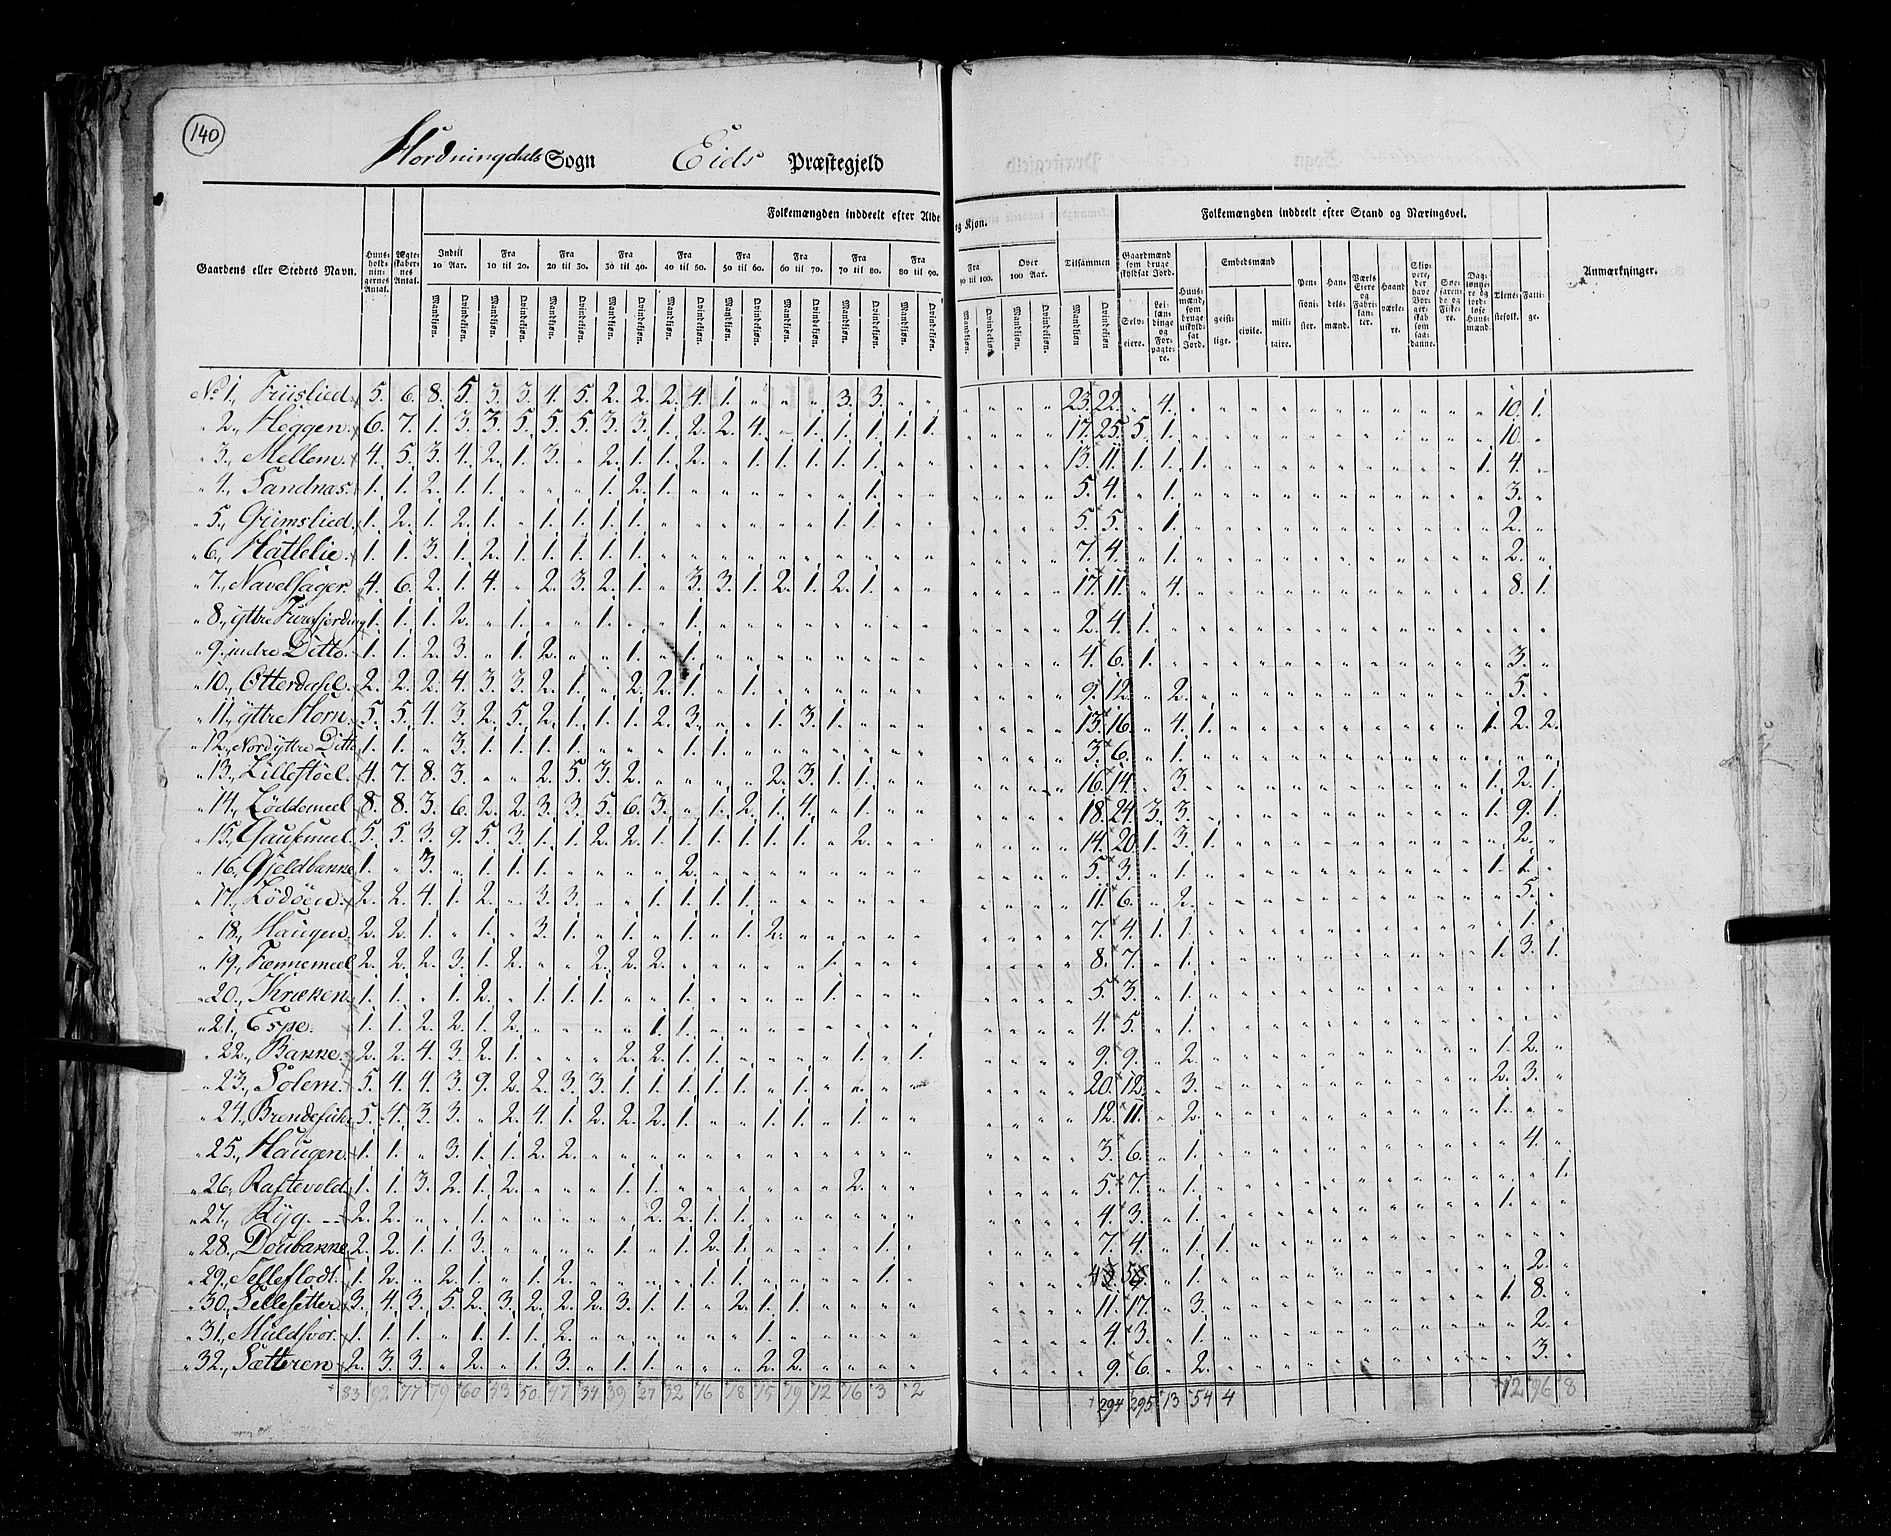 140
Hordningdals Sogn Eids Præstegjeld
Folkemængden inddeelt efter Alde
og Kjøn.
Folkemængden inddeelt efter Stand og Næringsvei.
Gaardens eller Stedets Navn.
Huus-holdningernes Antal.
Ægteskabernes Antal.
Indtil 10 Aar. Fra 10 til 20. Fra 20 til 30. Fra 30 til 40. Fra 40 til 50. Fra 50 til 60. Fra 60 til 70. Fra 70 til 80. Fra 80 til 90.
Fra 90 til 100. Over 100 Aar. Tilsammen
Gaardmænd som bruge skyldsat Jord. Embedsmænd
Mandkjøn. Qvindekjøn.
Selveiere. Leilændinge og Forpagtere. Huusmænd, som bruge uskyldsat Jord. geistlige. civile. militaire. Pensionister. Handelsmænd. Haandværkere. Tjenestefolk. Fattige.
Anmærkninger.
No 1, Friislied 5. 6. 8. 5. 3. 3. 4. 5. 2. 2. 2. 4. 1. " " " 3. 3. " " " " " " 23. 22. " 4. 10. 1.
" 2, Heggen 6. 7. 1. 3. 3. 5. 5. 5. 3. 3. 1. 2. 2. 4. " 1. 1. 1. 1. 1. " " " " 17. 25. 5. 1. 10. "
" 3, Mellem 4. 5. 3. 4. 2. 1. 3. " 2. 1. 1. 2. " 1. 1. 1. 1. 1. " " " " " " 13. 11. 1. 1. 1. 1. 4. "
" 4, Sandnæs 1. 1. 2. 1. 1. " " " 1. 2. 1. " " " " " " 1. " " " " " " 5. 4. " 1. 3. "
" 5, Grimslied 1. 2. 1. 2. 1. " 1. 1. 1. 1. " " " " " " 1. 1. " " " " " " 5. 5. " 1. 2. "
" 6, Hattelie 1. 1. 3. 1. 2. 1. 1. 1. 1. 1. " " " " " " " " " " " " " " 7. 4. " 1. 2. "
" 7, Navelsager 4. 6. 2. 1. 4. " 2. 3. 2. 1. " 3. 3. 1. 2. 1. 2. 1. " " " " " " 17. 11. " 4. 8. 1.
" 8, yttre 1. 1. 1. 2. " 1. " " 1. " " 1. " " " " " " " " " " " " 2. 4. 1.
" 9, indre Ditto 1. 1. 2. 3. " 1. 2. " " 1. " 1. " " " " " " " " " " " " 4. 6. 1. 3. "
" 10, Otterdahl 2. 2. 2. 4. 3. 3. 2. 1. " 2. 2. 1. " 1. " " " " " " " " " " 9. 12. " 2. 5. "
" 11, yttre Horn 5. 5. 4. 3. 2. 5. 2. 1. 1. 1. 2. 3. " " 1. 3. 1. " " " " " " " 13. 16. " 4. 1. 1. 2. 2.
" 12, Nordyttre Ditto 1. 1. " 3. 1. 1. 1. 1. " " " 1. 1. " " " " " " " " " " " 3. 6. " 1.
" 13, Lillestøel 4. 7. 8. 3. " " 2. 5. 3. 2. " " " " 2. 3. 1. 1. " " " " " " 16. 14. " 3. 1. 2. 1.
" 14, Løddemeel 8. 8. 3. 6. 2. 2. 3. 3. 5. 6. 3. " 1. 2. 1. 4. " 1. " " " " " " 18. 24. 3. 3. 1. 9. 1.
" 15, Gausemeel 5. 5. 3. 9. 5. 3. 1. 1. 2. 2. 1. 1. 1. 1. 1. 1. " 2. " " " " " " 14. 20. 1. 3. 1. 2. "
" 16, Gjeldbakke 1. " 3. " 1. 1. 1. " " " " 2. " " " " " " " " " " " " 5. 3. " 1. 1. 1. "
" 17, Lødøen 2. 2. 4. 1. 2. " 3. 3. " " 1. 1. 1. 1. " " " " " " " " " " 11. 6. " 2. 5. "
" 18, Haugen 2. 2. 1. " 1. " 3. 1. " 1. " 1. " 1. 2. " " " " " " " " " 7. 4. 1. 1. 1. "
" 19, Tennemeel 2. 2. 2. 3. 1. 2. " " 2. 2. 2. " " " " " 1. " " " " " " " 8. 7. " 1. 1. 3. 1.
" 20, Kriken 1. 1. " 1. 2. " 1. 1. 1. " " 1. " " " " 1. " " " " " " " 5. 3. " 1.
" 21, Espe 1. 1. 2. 2. 1. 2. " " " " 1. 1. " " " " " " " " " " " " 4. 5. " 1.
" 22, Bakke 2. 2. 4. 3. 2. 1. " " " 2. 2. 1. 1. " " " " 1. " 1. " " " " 9. 9. " 2. 1. 2. "
" 23, Solem 5. 4. 4. 3. 9. 2. 2. 3. 3. 1. 1. 1. 1. 1. " 1. " " " " " " " " 20. 12. " 3. 2. 3. "
" 24, 5. 4. 3. 3. " 2. 4. 1. 2. 2. 2. 1. " " 1. 1. " 1. " " " " " " 12. 11. " 2. 1. " "
" 25, Haugen 1. 1. " 3. 1. 1. 2. 2. " " " " " " " " " " " " " " " " 3. 6. " 1. 4. "
" 26, Raftevold 1. 1. 3. 2. 1. 2. " " " 1. 1. " " " " " " 2. " " " " " " 5. 7. " 1. 1.
" 27, Ryg 2. 2. " " 1. " " " " " 2. 2. 1. 1. " " " " " " " " " " 4. 3. " 1. 1. " "
" 28, Doubakke 2. 2. 1. 1. 3. " " " " 1. " 1. 2. 1. " " " " 1. " " " " " 7. 4. " 1. 1.
" 29, Selleflodt 1. 2. " 2. 1. " 1. 2. " " " " 1. 1. " " " " 1. " " " " " 4. 5. " 1. 2. "
" 30, Sellesetter 3. 4. 3. 5. 2. 3. 2. 2. 2. 3. 1. 1. " 2. 1. 1. " " " " " " " " 11. 17. " 3. 1. 8. "
" 31, Muldsvor 1. 1. 1. " 1. 1. 1. 2. " " " " " " 1. " " " " " " " " " 4. 3. " 1. 2. "
" 32, Sætteren 2. 3. 3. " 2. " 1. 3. " 1. 1. " " " 2. 2. " " " " " " " " 9. 6. " 2. 3. "
83 92 77 79 60 43 50 47 34 39 27 32 16 18 15 19 12 16 3 2 294 295 13 54 4 12 96 8